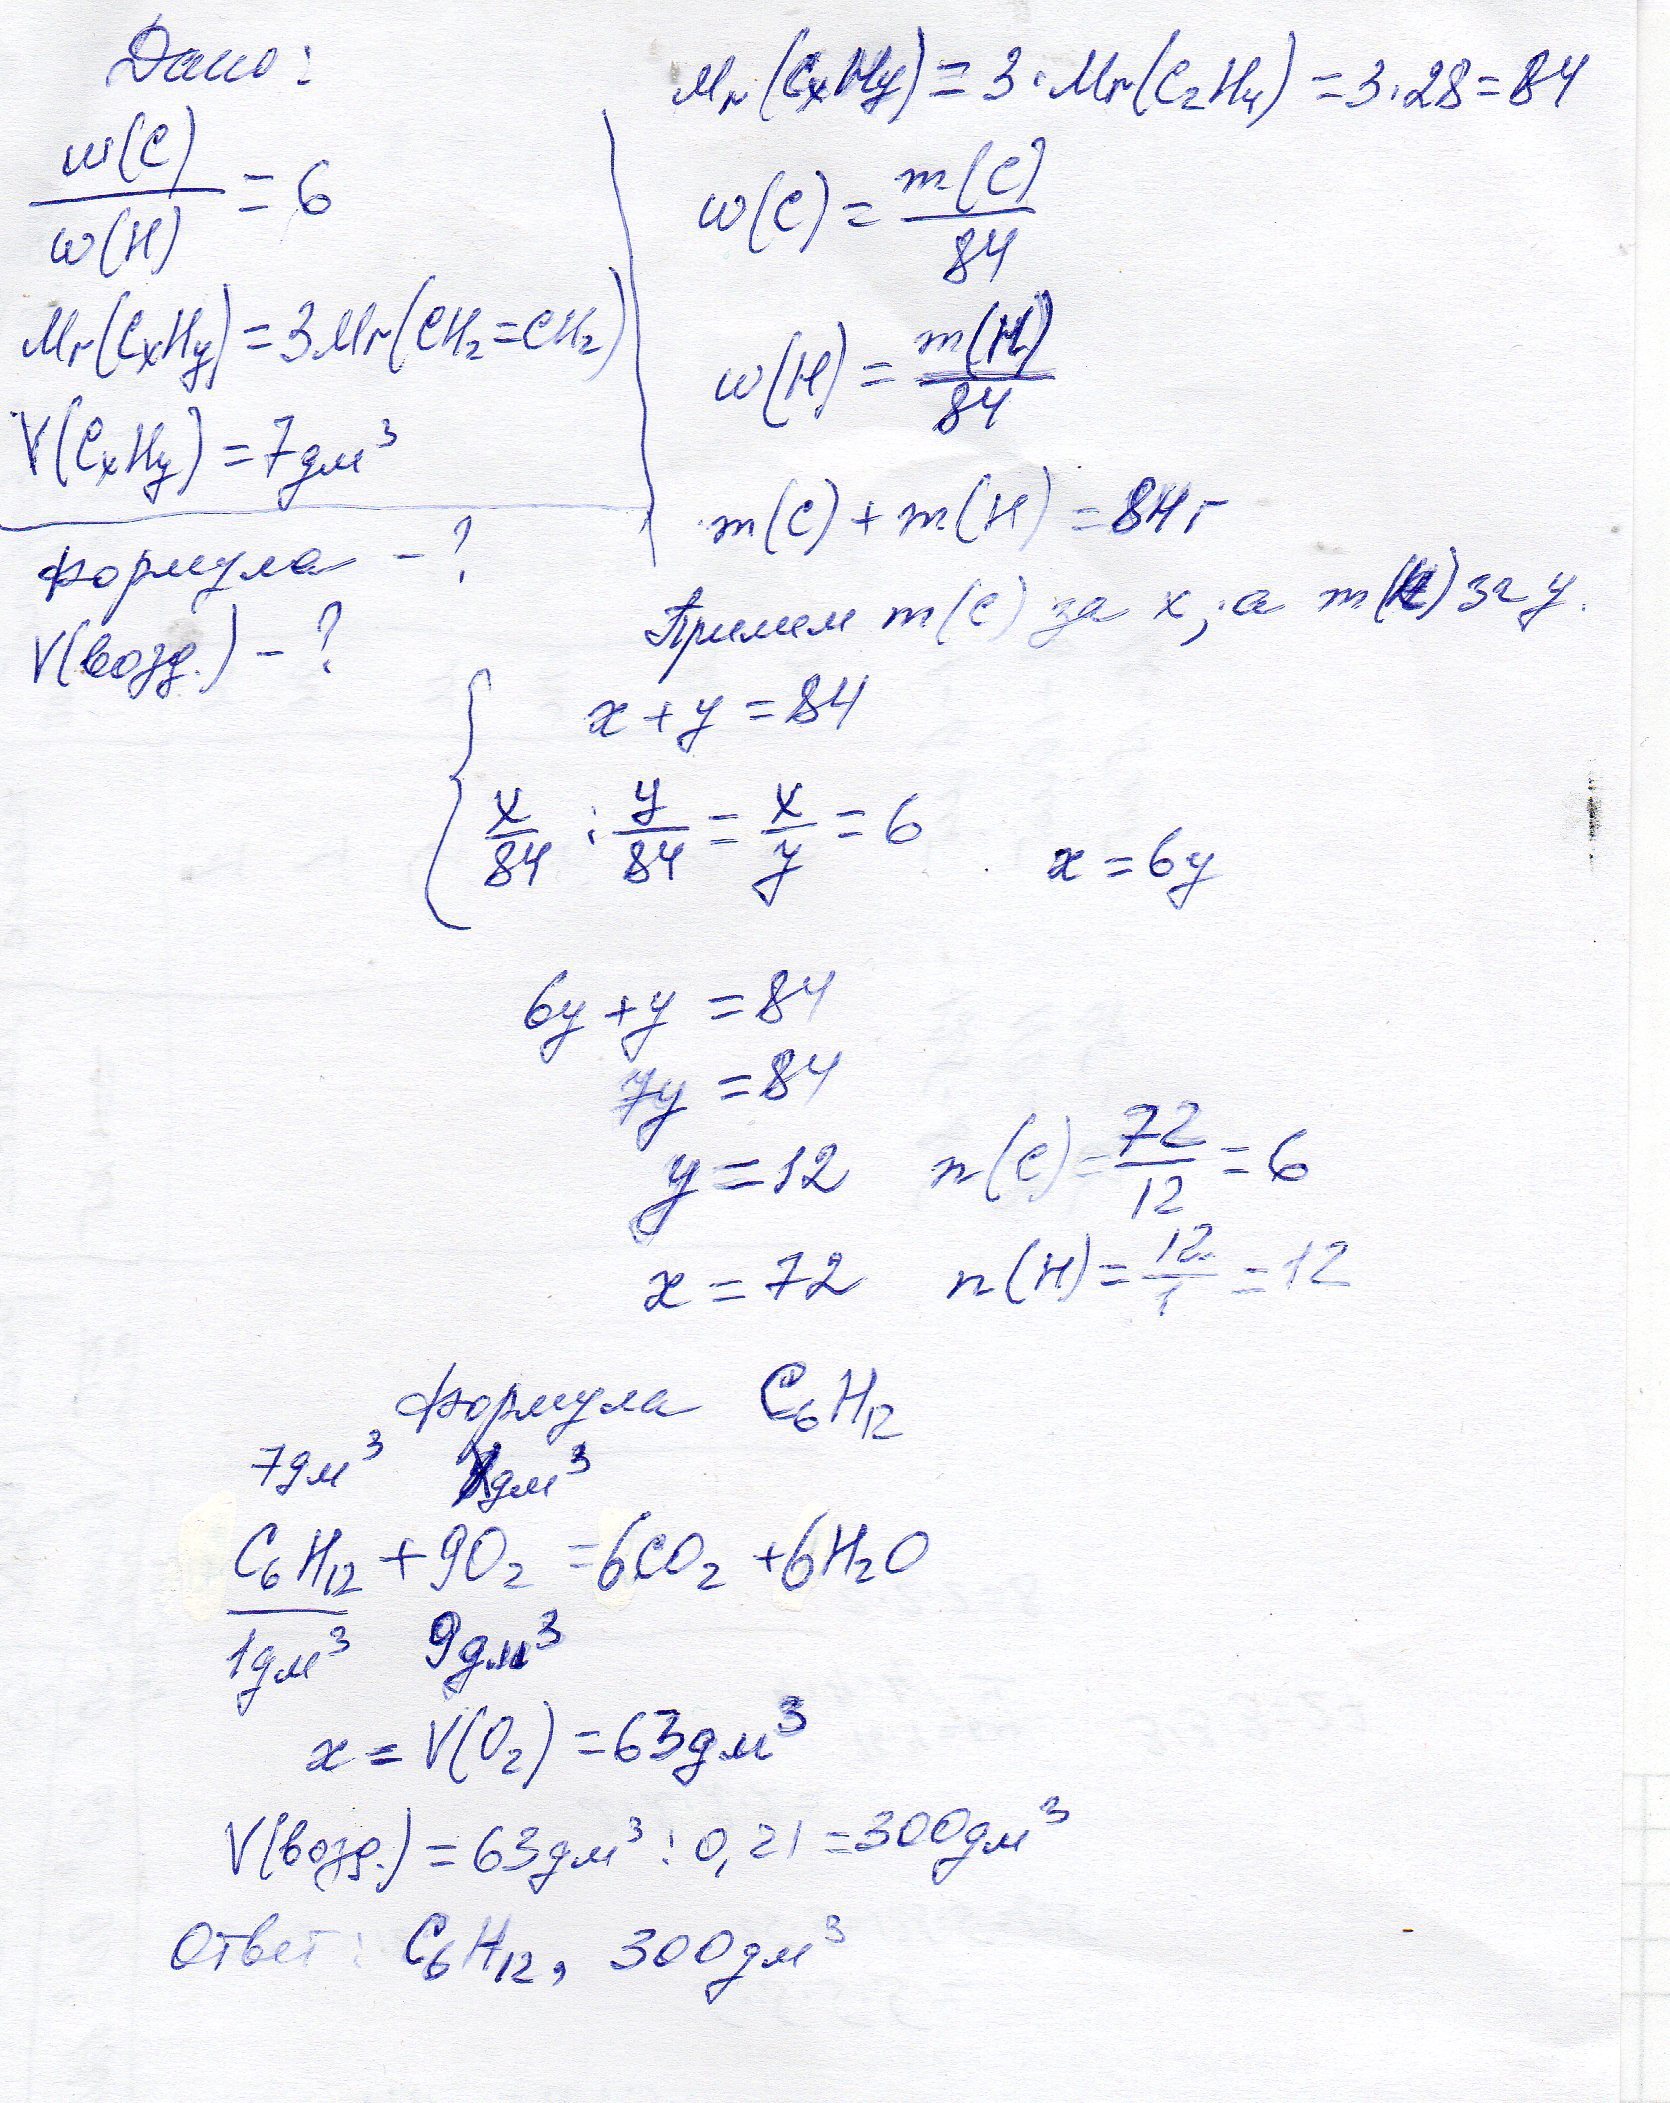 Дано:
w(C)/w(H) = 6
Mr(CxHy) = 3Mr(CH₂=CH₂)
V(CxHy) = 7дм³
формула - ?
V(возд.) - ?
Mr(CxHy) = 3·Mr(C₂H₄) = 3·28 = 84
w(C) = m(C)/84
w(H) = m(H)/84
m(C) + m(H) = 84г
Примем m(C) за x, а m(H) за y.
x + y = 84
x/84 : y/84 = x/y = 6 x = 6y
6y + y = 84
7y = 84
y = 12 n(C) = 72/12 = 6
x = 72 n(H) = 12/1 = 12
формула C₆H₁₂
7дм³ xдм³
C₆H₁₂ + 9O₂ = 6CO₂ + 6H₂O
1дм³ 9дм³
x = V(O₂) = 63дм³
V(возд.) = 63дм³ : 0,21 = 300дм³
Ответ: C₆H₁₂, 300дм³